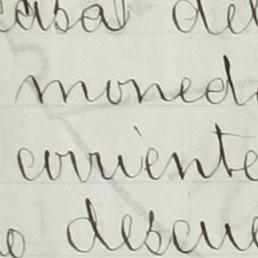 casal del
moneda
corriente
o descue